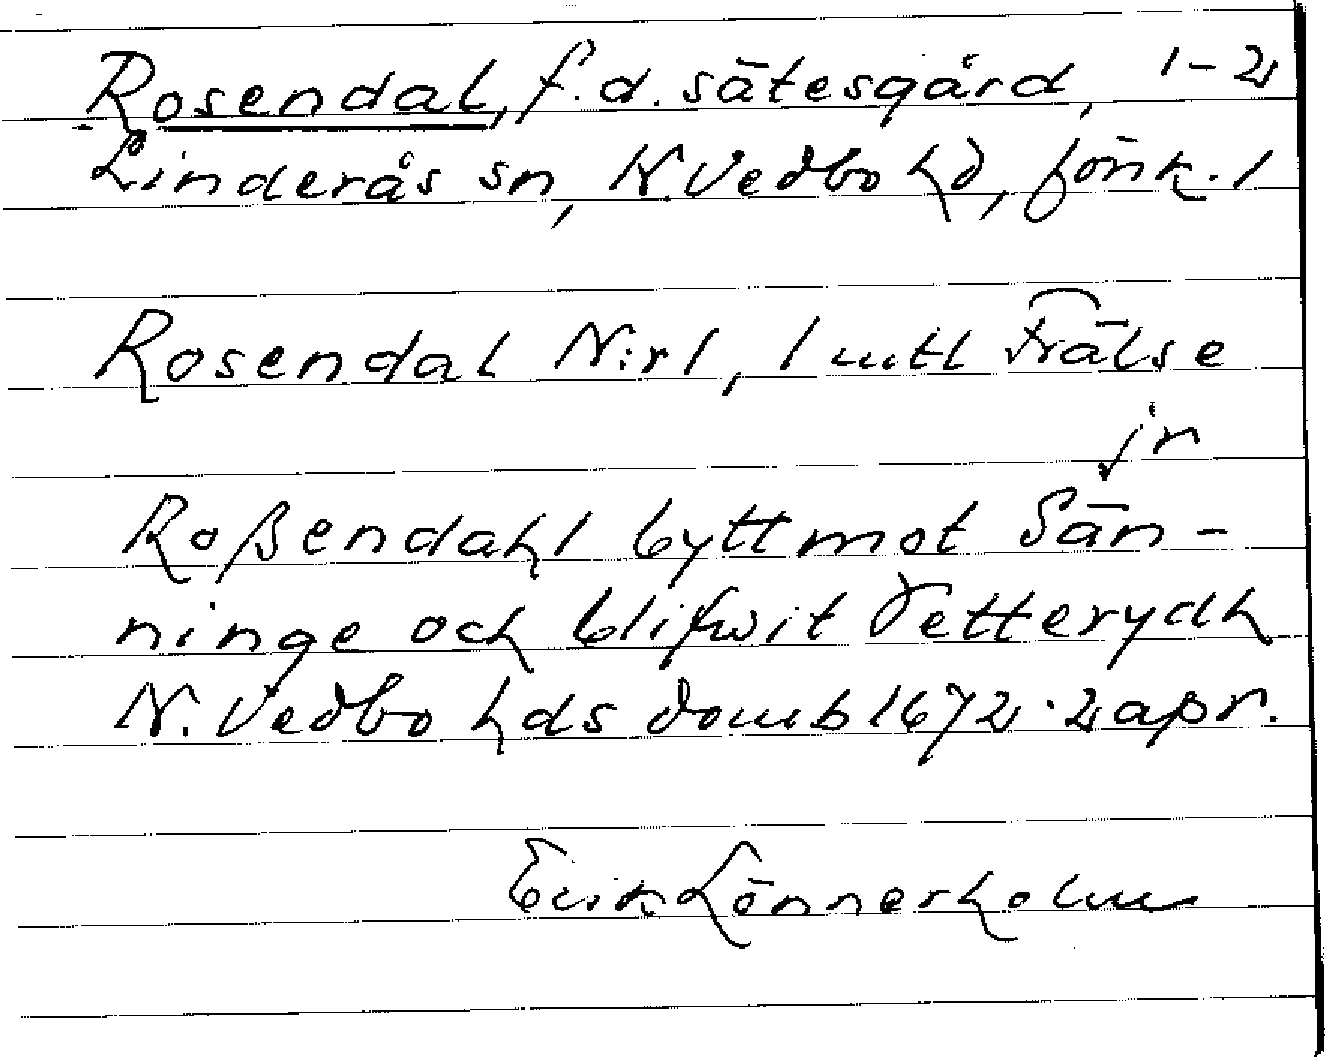 Rosendal, f.d. sätesgård, 1-2
Linderås sn, N.Vedbo hd, Jönk. l
Rosendal N:r 1, 1 mtl Frälse
jn
Roßendahl bytt mot Sän-
ninge och blifwit Vetterydh
N. Vedbo hds domb 1672. 2 apr.
Erik Lönnerholm